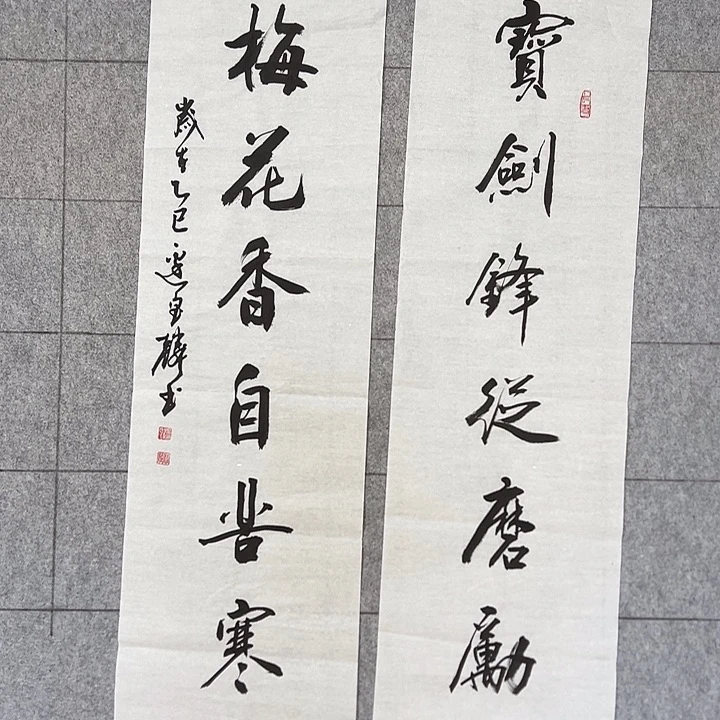 寶劍鋒從磨勵
梅花香自苦寒
歲在乙巳